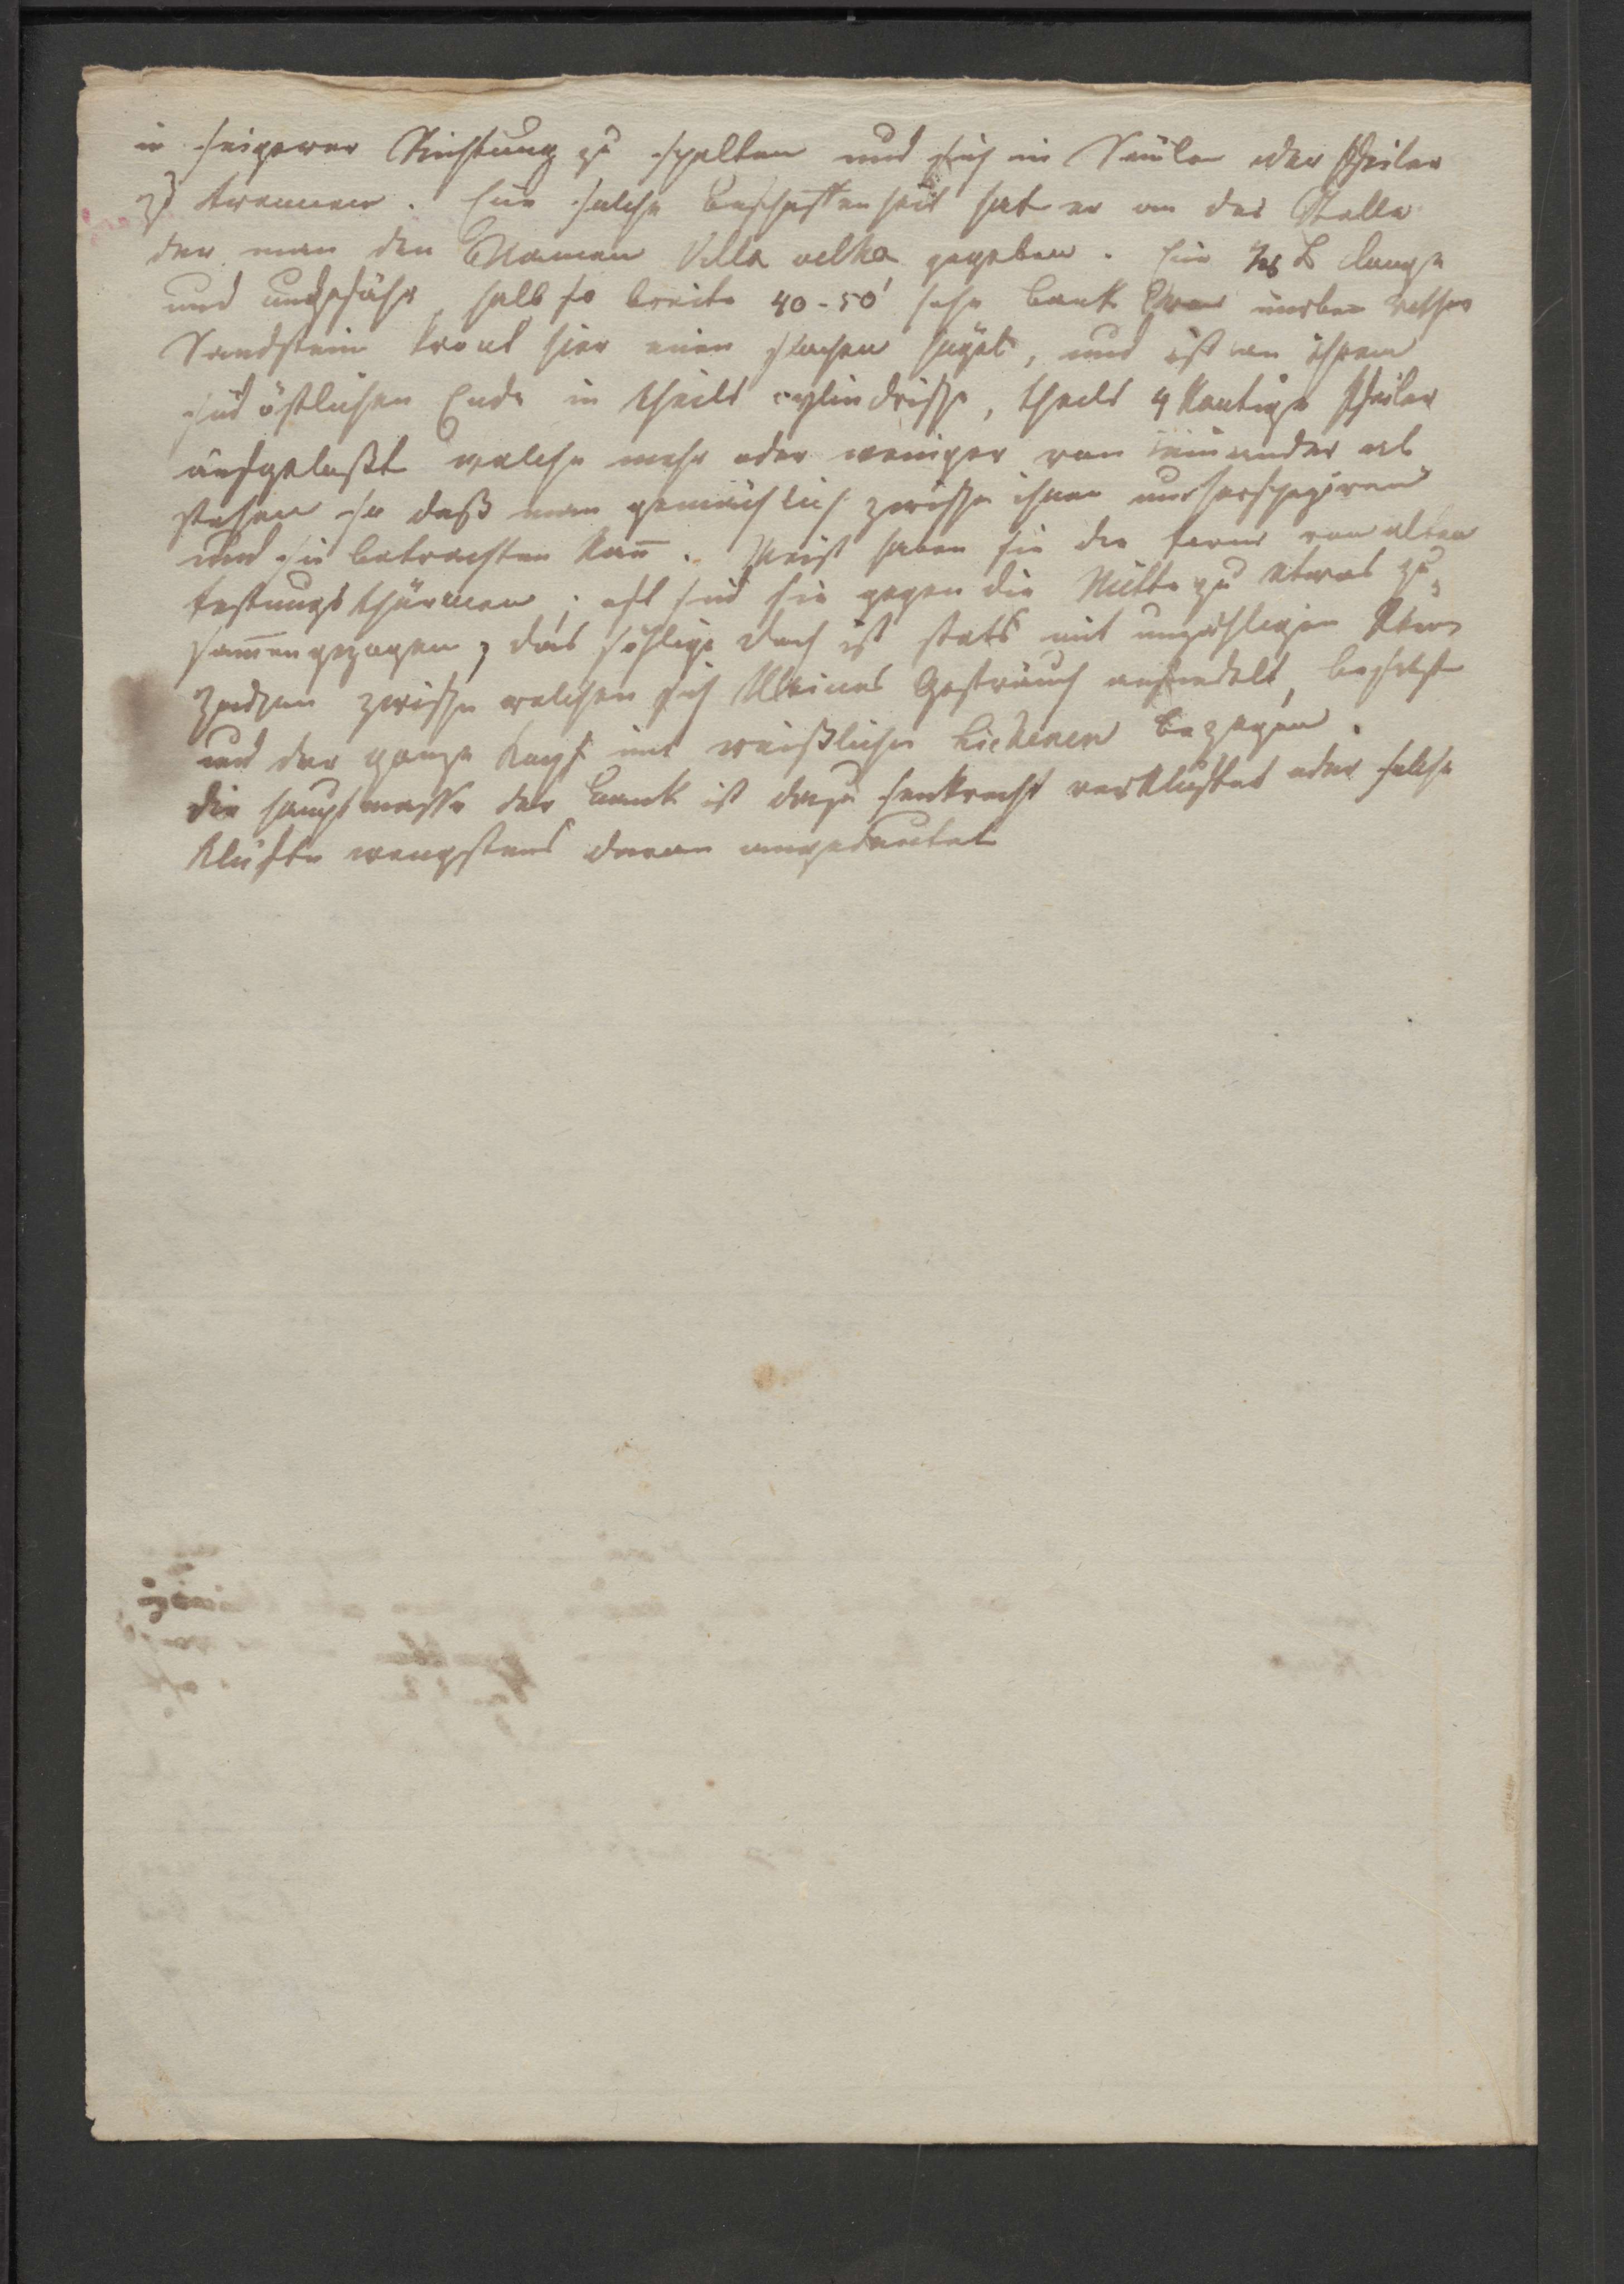 in seigerer Richtung zu spalten und sich in Säulen oder Pfeiler
zu trennen. Eine solche Beschaffenheit hat er an der Stelle
der man den Namen Villa velha gegeben. Eine L lange
und ungefähr halb so breite 40-50' hohe Bank mürben rothen
Sandstein krönt hier einen flachen Hügel, und ist an ihrem
südöstlichen Ende in theils cylindrische, theils 4 kantige Pfeiler
aufgelößt welche mehr oder weniger von einander ab
stehen so daß man gemächlich zwischen ihnen umherspaziren
und sie betrachten kan̄. Meist haben sie die Form von alten
Festungsthürmen; oft sind sie gegen die Mitte zu etwas zu-
sam̄engezogen, das söhlige Dach ist stets mit unzähligen kleinen
Zacken zwischen welchen sich kleines Gesträuch ansiedelt, besetzt
und der ganze Kopf mit weißlichen Lichenen bezogen.
die Hauptmasse der Bank ist dazu senkrecht zerklüftet oder solche
Klüfte wengstens daran angedeutet